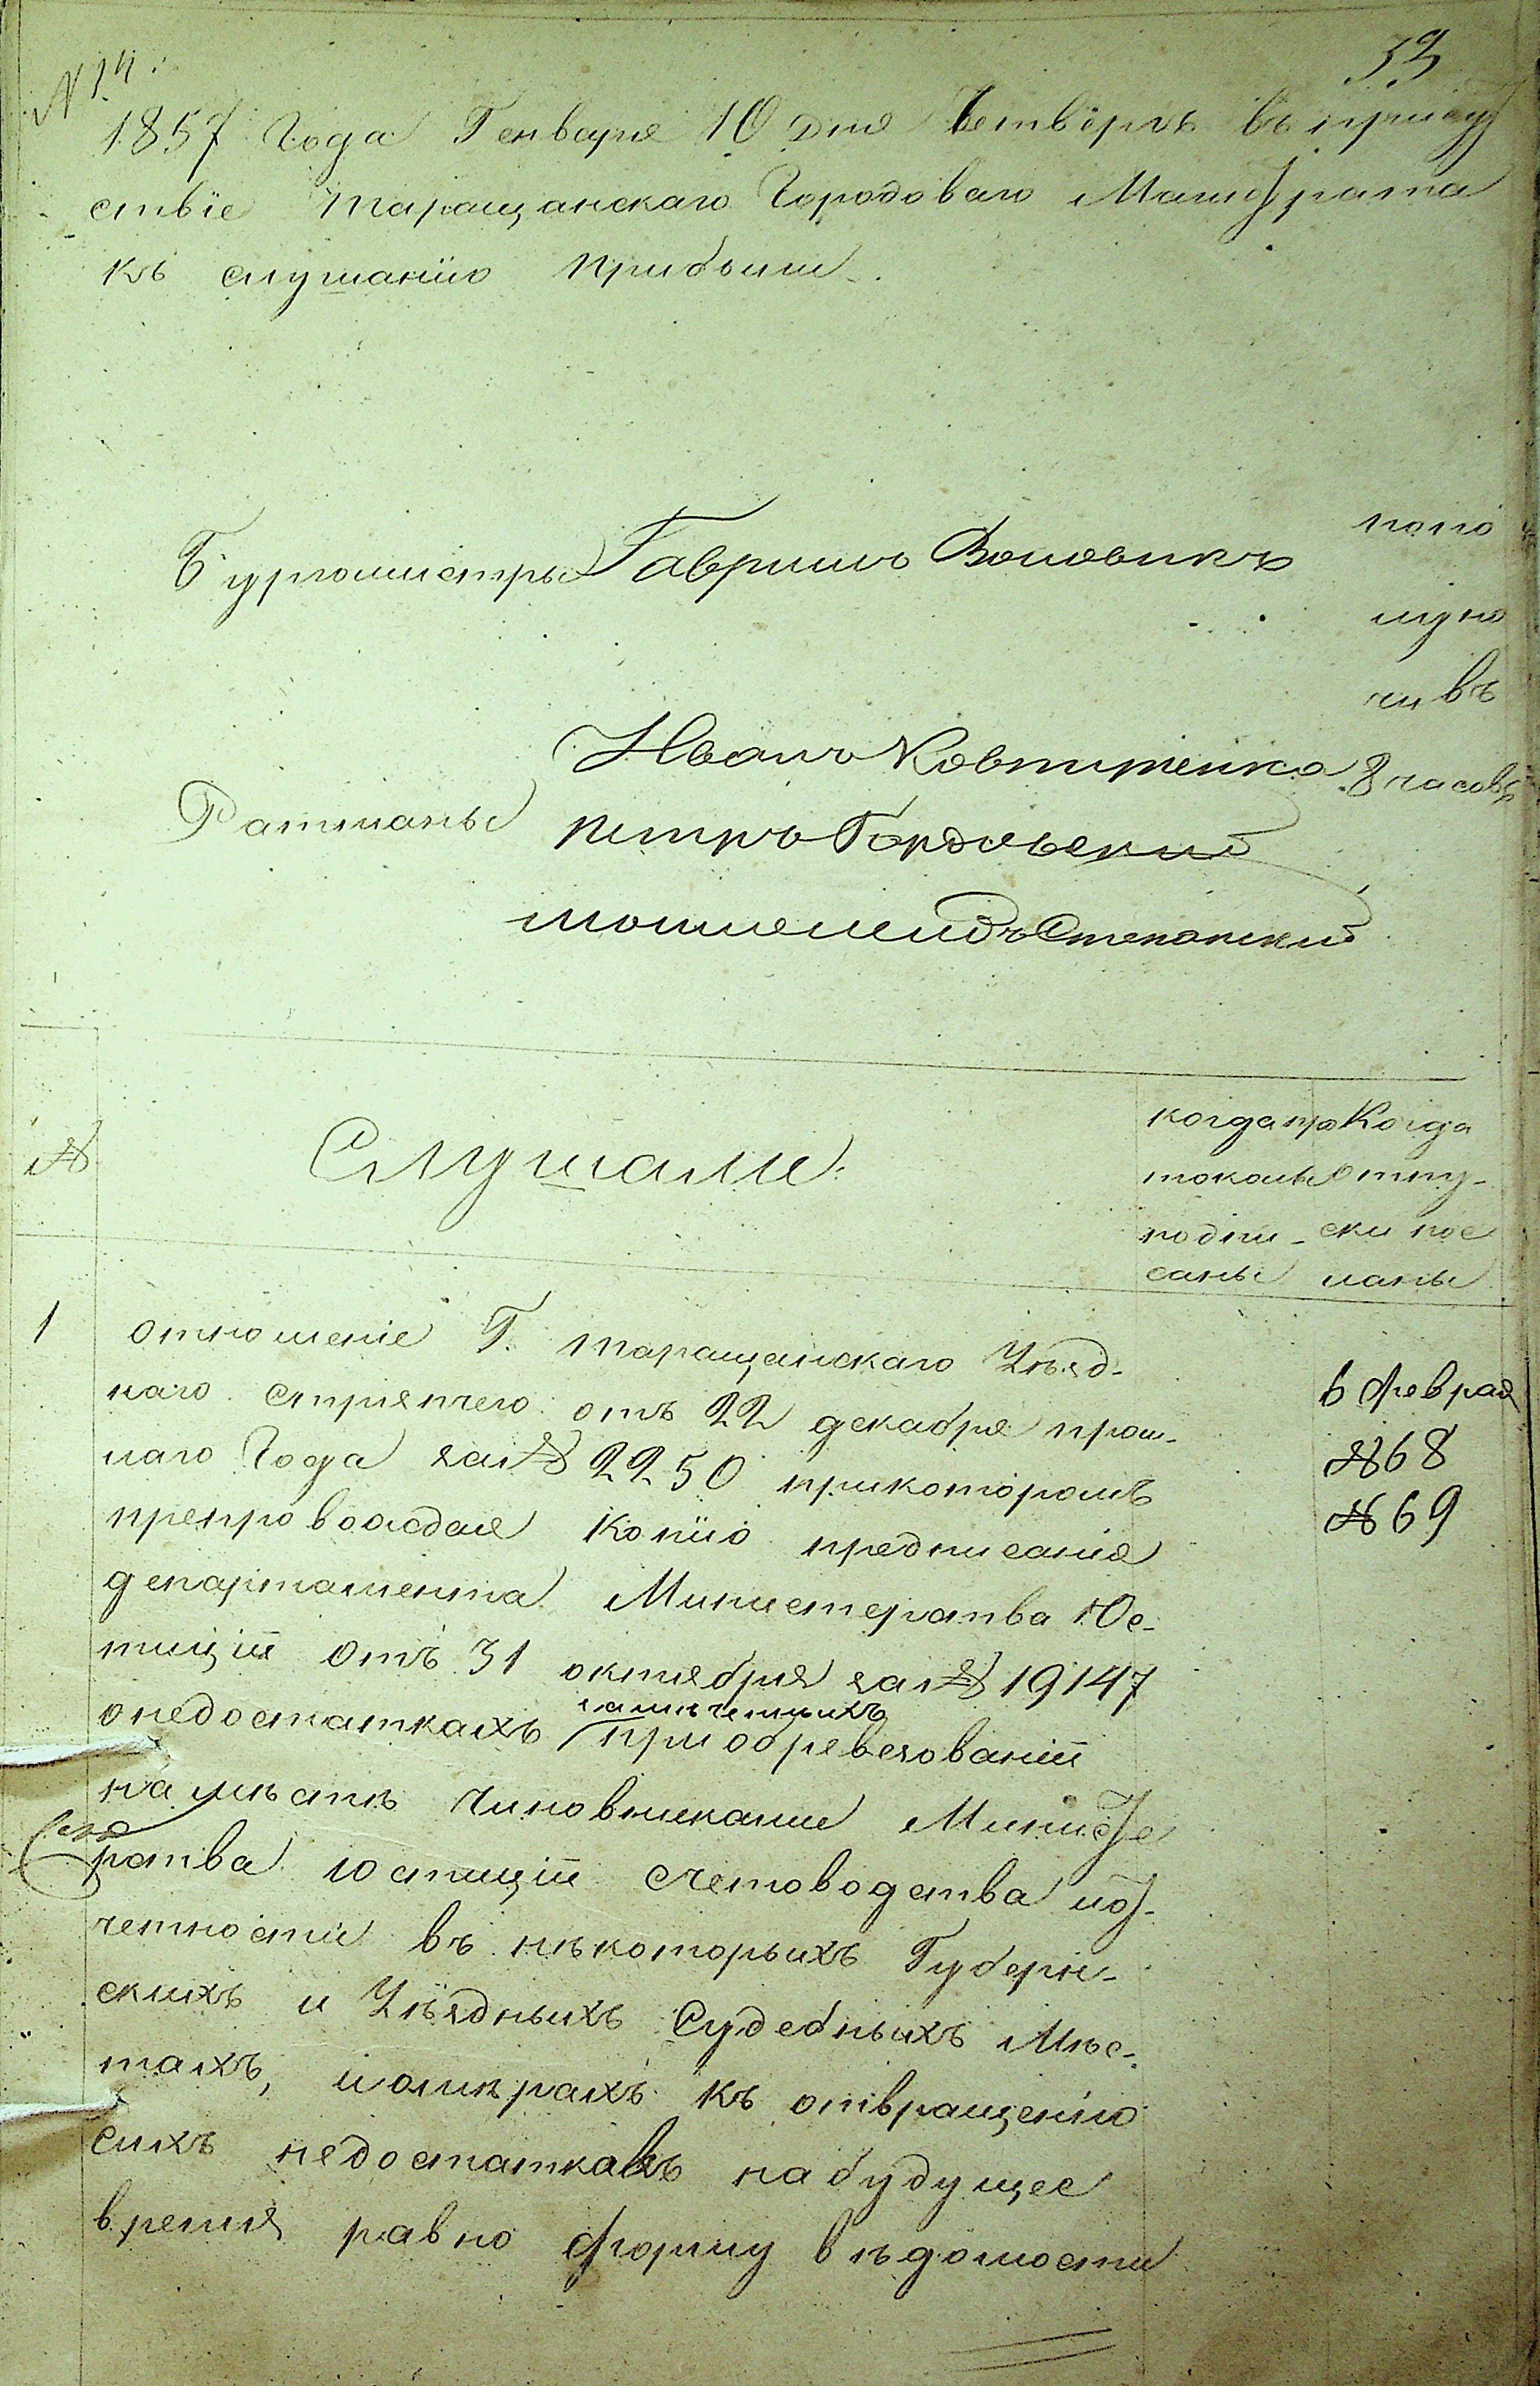 № 14.
33
1857 Года Генваря 10 дня Четвергъ въ присут
ствіе Таращанскаго Городоваго Магистрата
къ слушанію прибыли
Бургомистры Гавріилъ Воловикъ
попо
лудно
чи въ
Иванъ Ковтуненко 8 часовъ
Ратманы Петръ Гордовскій
Степанскій
№ Слушали:
когда про Когда
токолы отпу-
подпи- ски пос
саны ланы
1 отношеніе Г. Таращанскаго Уѣзд-
наго стряпчего отъ 22 декабря прош-
лаго Года за № 2250 прикоторомъ
препровождая Копію предписанія
департамента Министерства Юс-
тиціи отъ 31 октября за № 19147
онедостаткахъ замѣченныхъ приобревизованіи
на мѣстѣ Чиновниками Министе
рства юстиціи счетоводства иот-
четности въ нѣкоторыхъ Губерн-
скихъ и Уѣздныхъ Судебныхъ Мѣс-
тахъ, иомѣрахъ къ отвращенію
сихъ недостатковъ набудущее
время равно форму вѣдомости
6 феврал
№ 68
№ 69